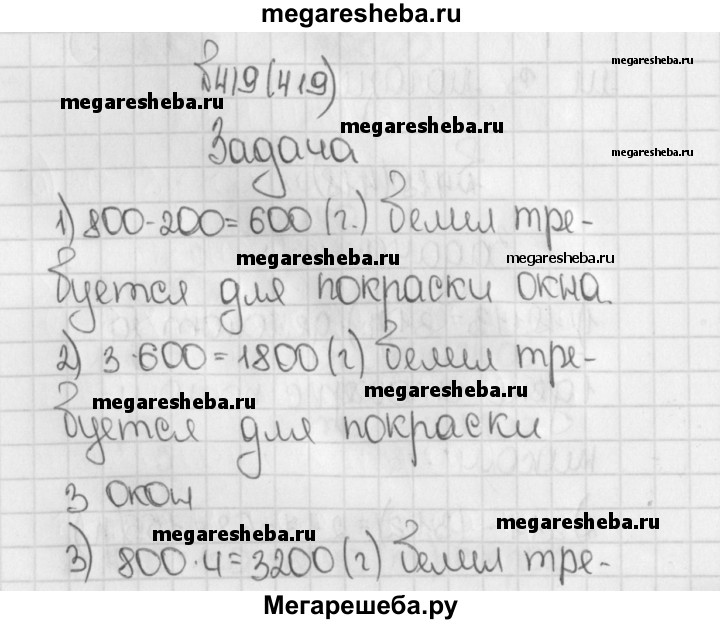 megaresheba.ru
№419(419)
megaresheba.ru
megaresheba.ru
megaresheba.ru
Задача
megaresheba.ru
1) 800-200=600 (г.) белил тре-
megaresheba.ru
megaresheba.ru
буется для покраски окна.
2) 3·600=1800 (г) белил тре-
megaresheba.ru
megaresheba.ru
буется для покраски
3 окон
megaresheba.ru
megaresheba.ru
3) 800·4=3200 (г) белил тре-
Мегарешеба.ру